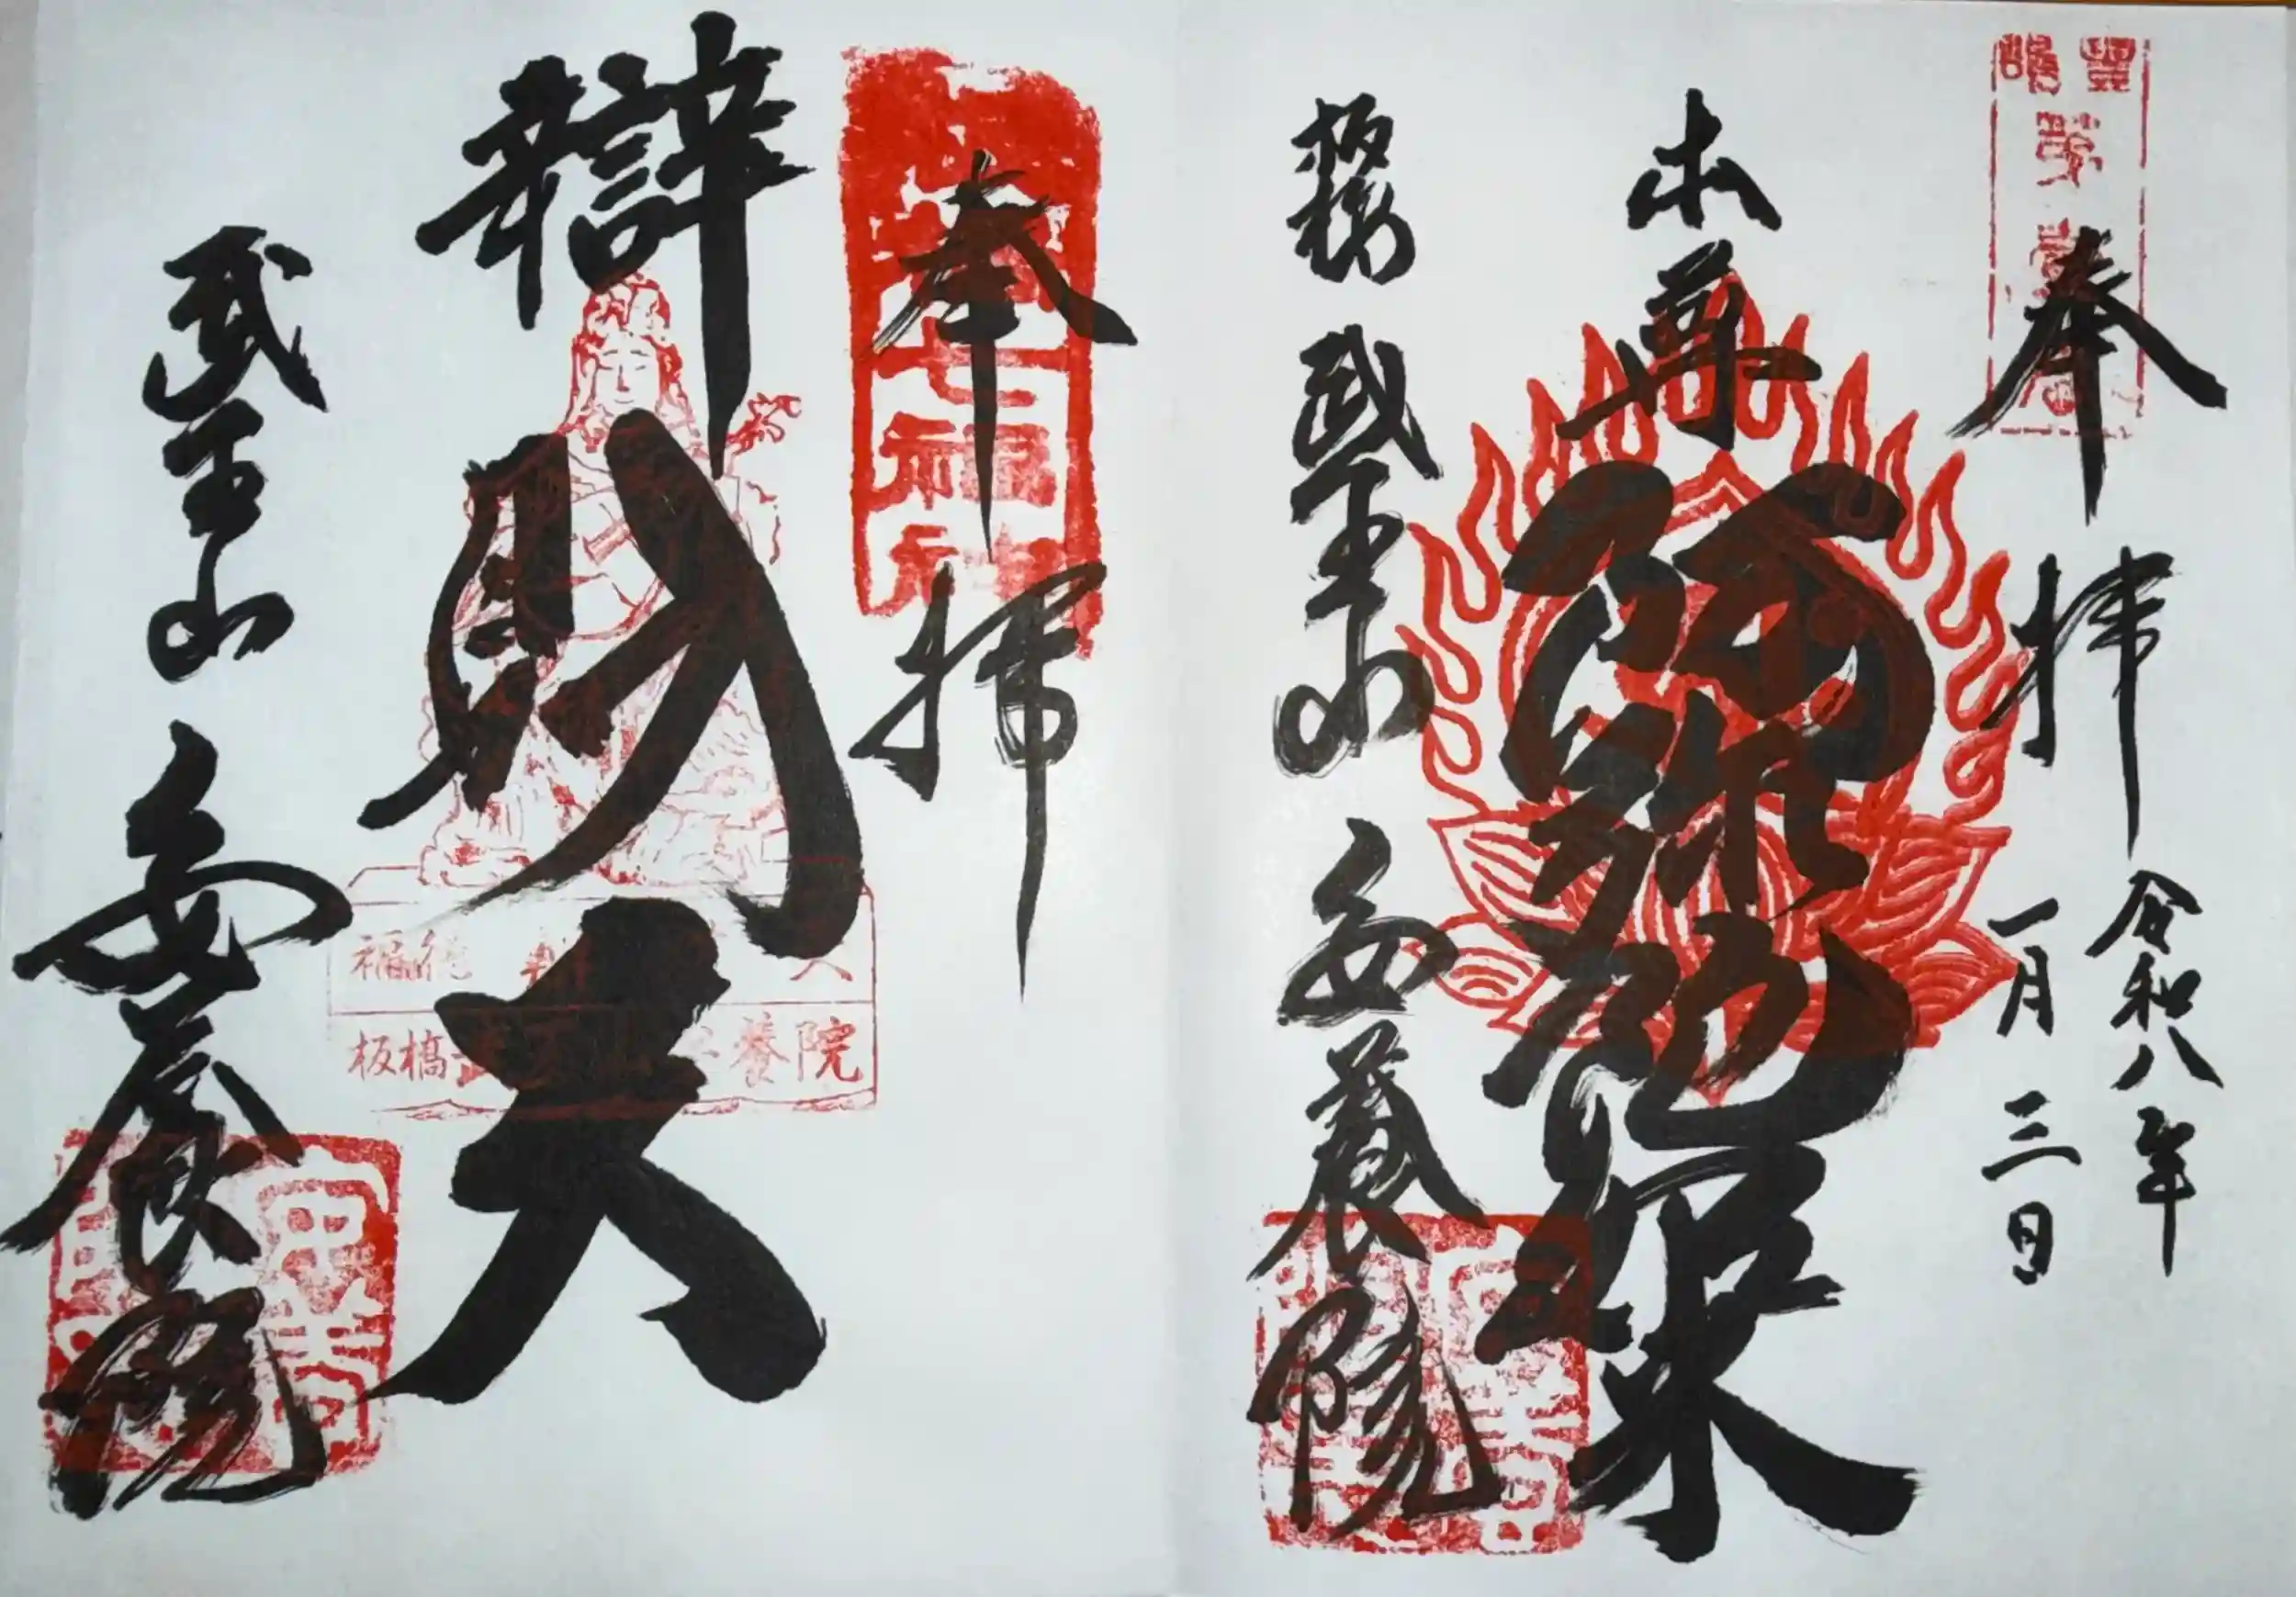 奉拝
令和八年
一月三日
本尊
阿弥陀如来
板橋 武王山 安養院
奉拝
七福神
辯財天
福徳
板橋 養院
武王山 安養院